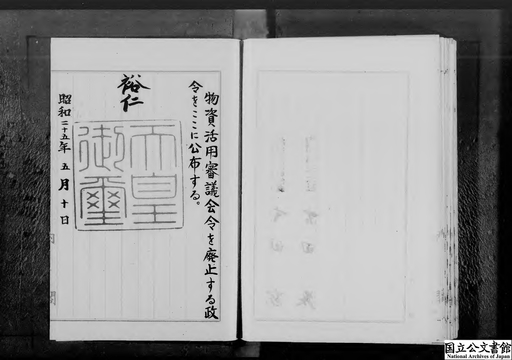 物資活用審議会令を廃止する政
令をここに公布する。
裕仁
天皇
御璽
昭和二十五年五月十日
国立公文書館
National Archives of Japan